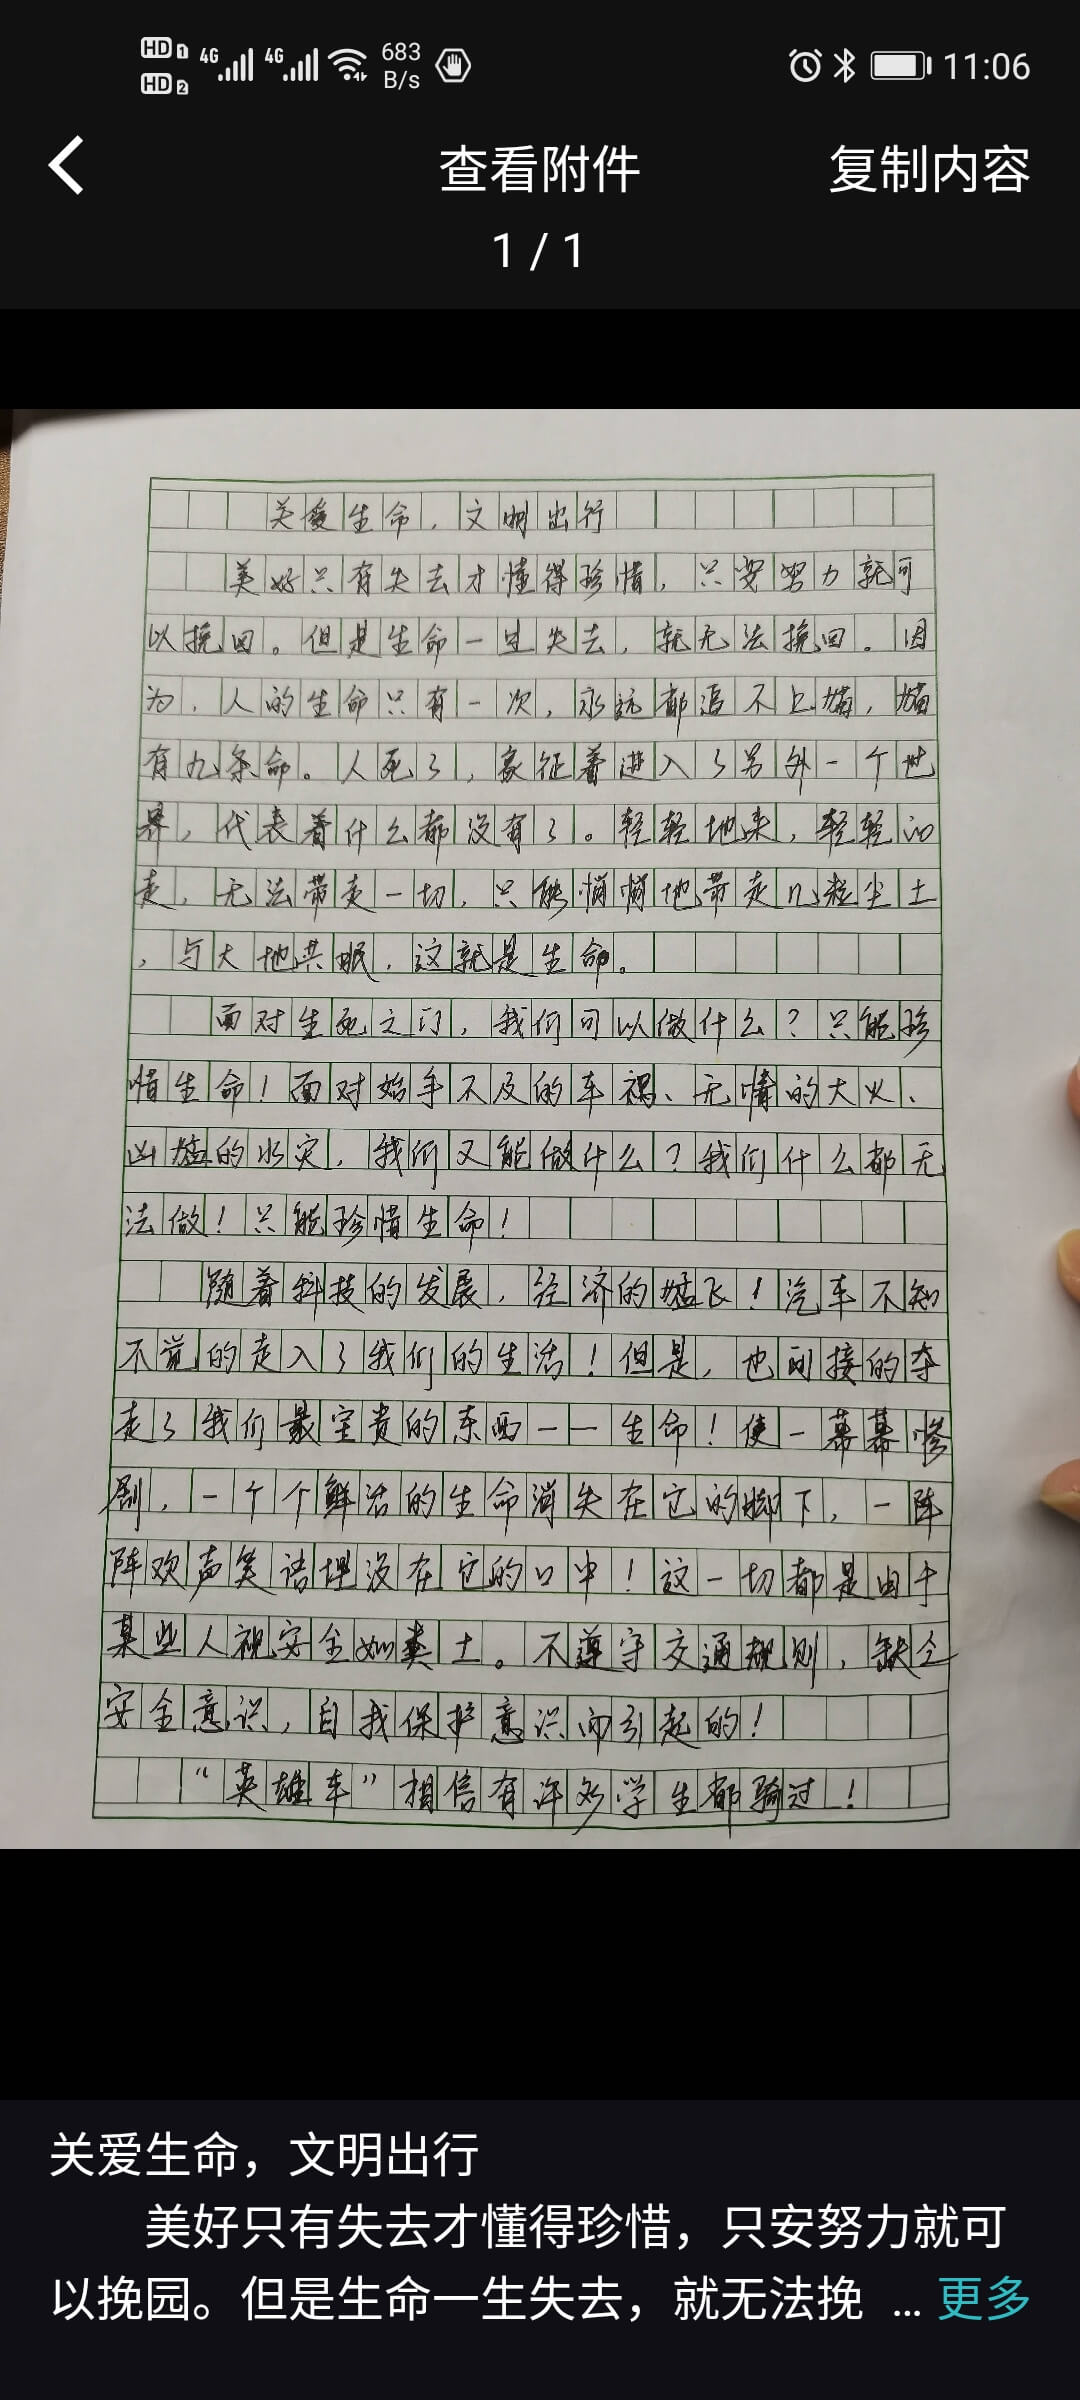 HD 1 4G 4G 683 B/s 11:06
HD 2
查看附件 复制内容
1 / 1
关爱生命，文明出行
美好只有失去才懂得珍惜，只要努力就可
以挽回。但是生命一旦失去，就无法挽回。因
为，人的生命只有一次，永远都追不上猫，猫
有九条命。人死了，象征着进入了另外一个世
界，代表着什么都没有了。轻轻地来，轻轻的
走，无法带走一切，只能悄悄地带走几粒尘土
，与大地共眠，这就是生命。
面对生死之门，我们可以做什么？只能珍
惜生命！面对始手不及的车祸、无情的大火、
凶猛的水灾，我们又能做什么？我们什么都无
法做！只能珍惜生命！
随着科技的发展，经济的猛飞！汽车不知
不觉的走入了我们的生活！但是，也间接的夺
走了我们最宝贵的东西——生命！使一幕幕惨
剧，一个个鲜活的生命消失在它的脚下，一阵
阵欢声笑语埋没在它的口中！这一切都是由于
某些人视安全如粪土。不遵守交通规则，缺乏
安全意识，自我保护意识而引起的！
“英雄车”相信有许多学生都骑过！
关爱生命，文明出行
美好只有失去才懂得珍惜，只安努力就可
以挽园。但是生命一生失去，就无法挽 ... 更多